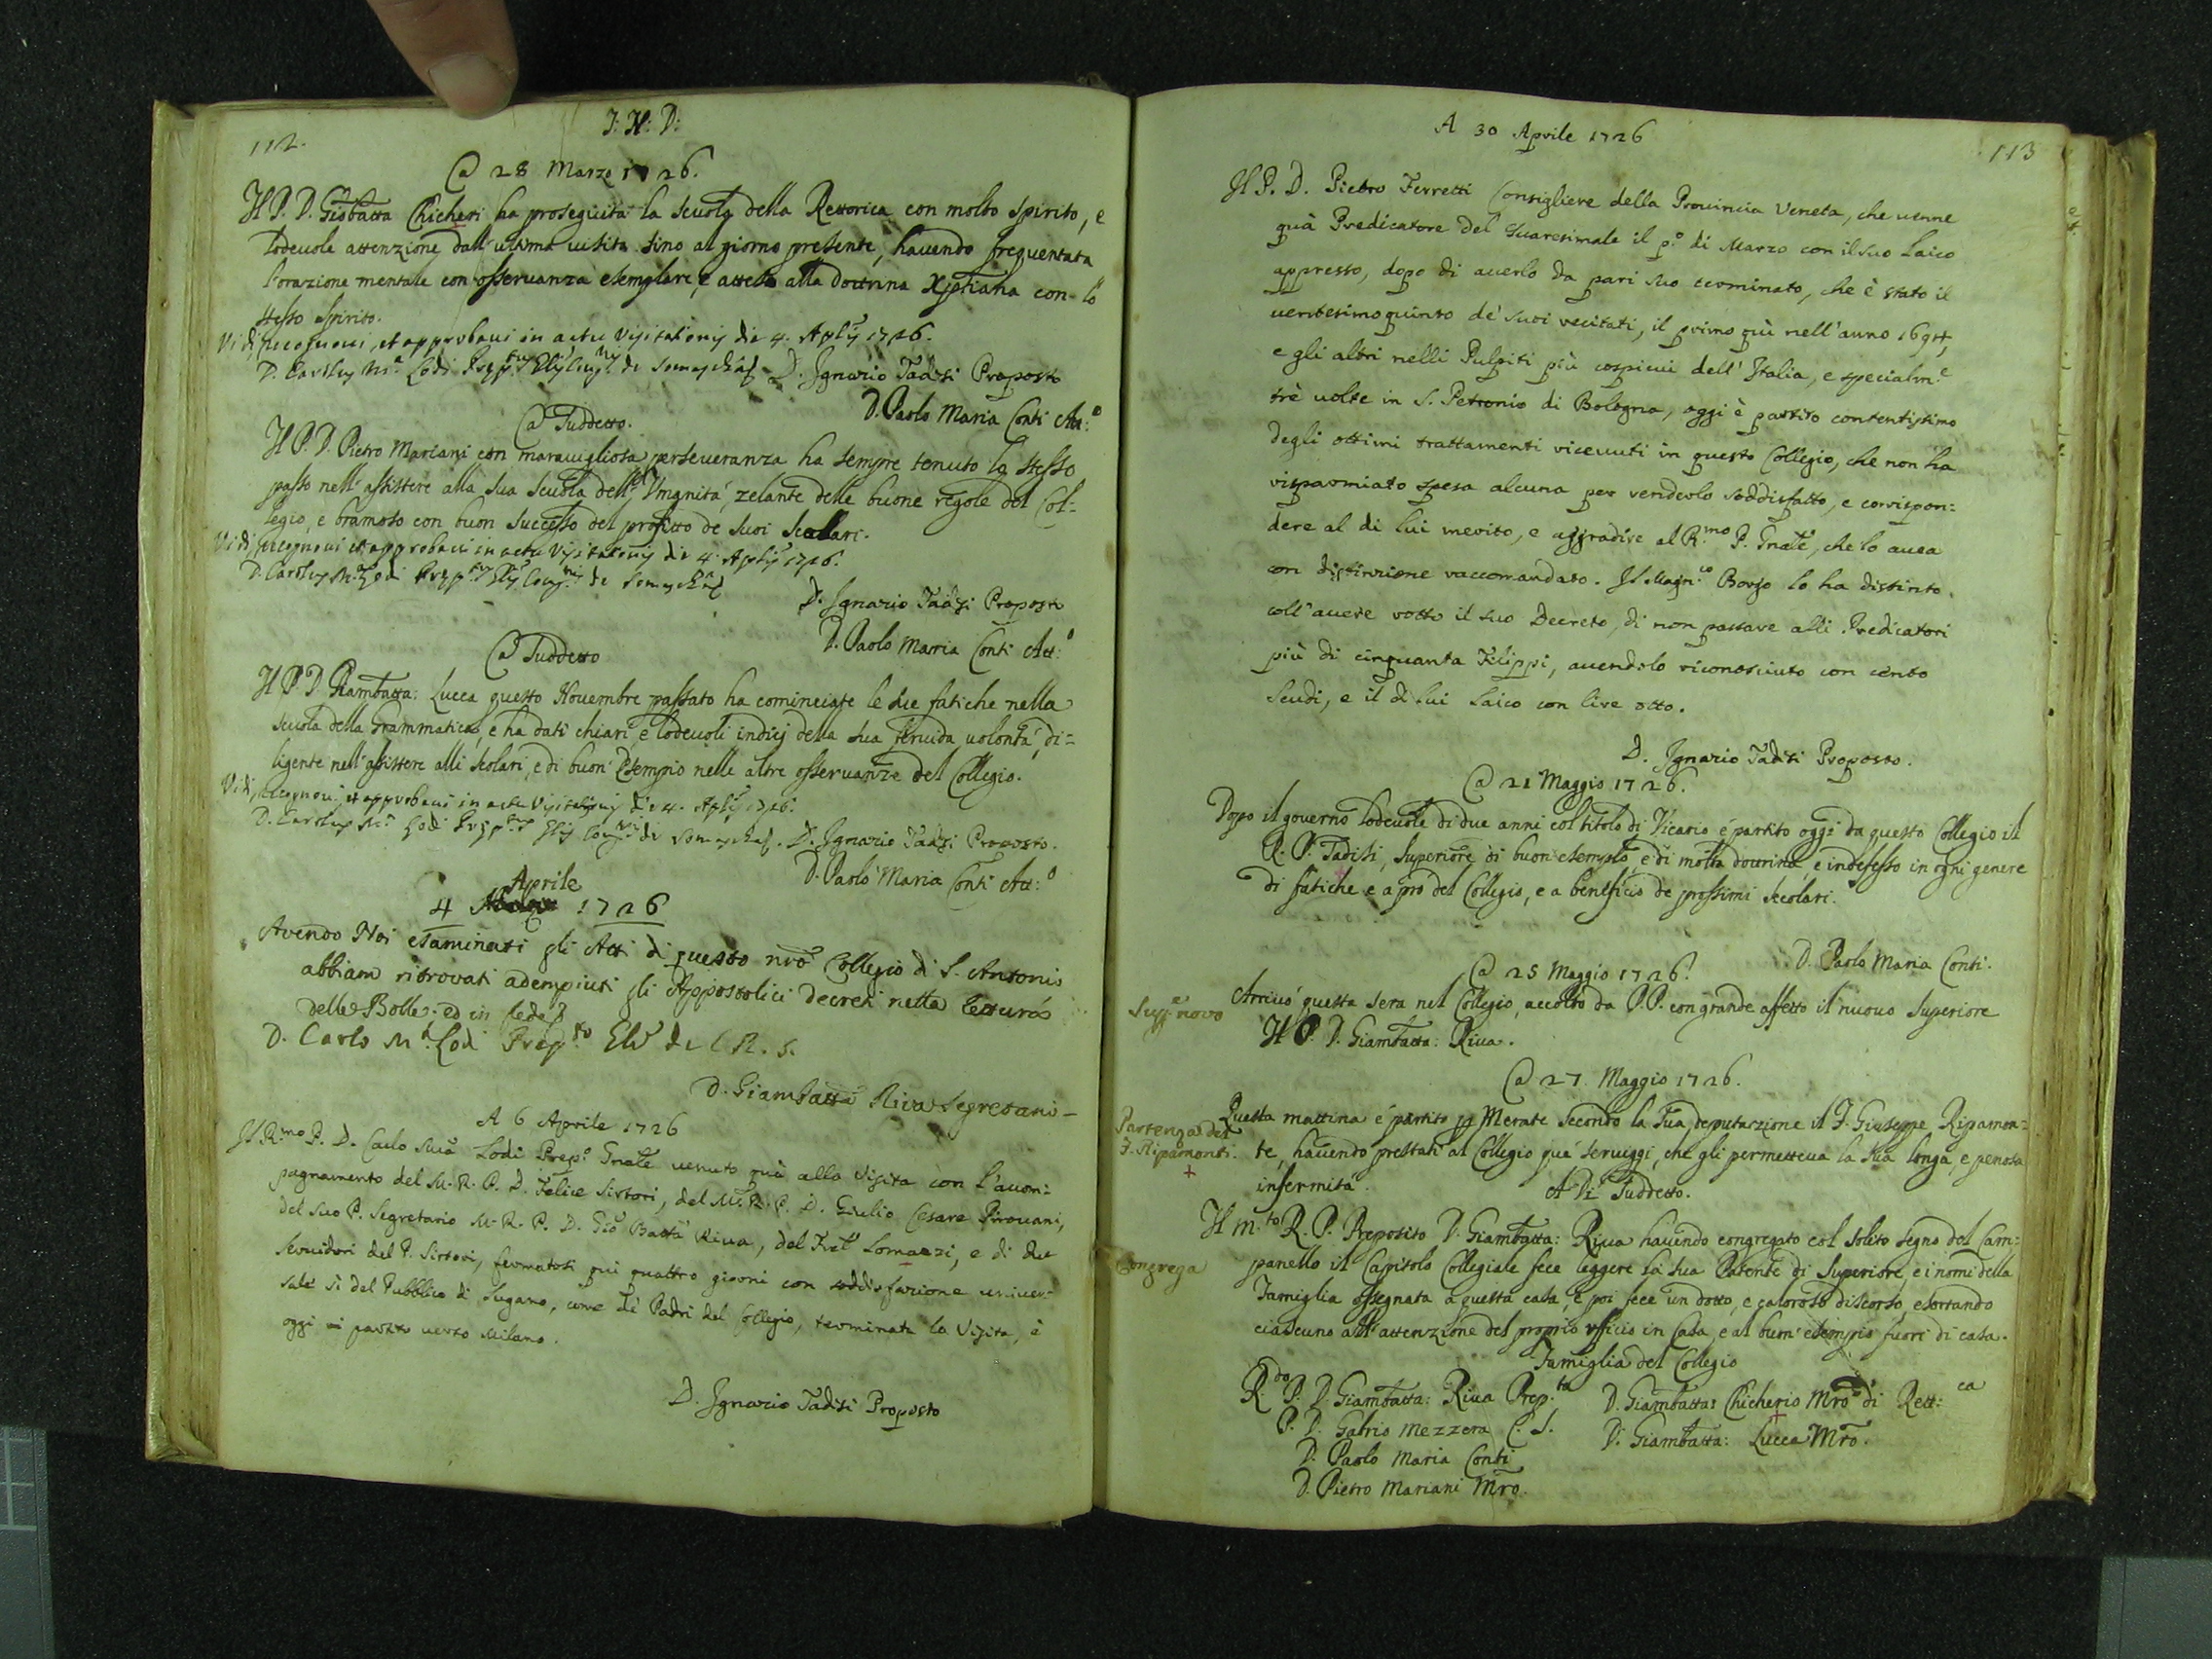 112.
J: N: D:
A 28 Marzo 1726.
Il P. D. Giobatta Chicheri ha proseguita la scuola della Rettorica con molto spirito, e
lodevole attenzione dall'ultima visita sino al giorno presente, havendo frequentata
l'orazione mentale con osservanza esemplare, e atteso alla dottrina Xptiana con lo
stesso spirito.
Vidi, recognoui, et approbaui in actu Visitationis die 4. Aplis 1726.
D. Carolus Mª Lodi Prep.tus Glis Cong.nis de Somascha
D. Ignazio Tadisi Proposto
D. Paolo Maria Conti Att:o
A Suddetto.
Il P. D. Pietro Mariani con maravigliosa perseueranza ha sempre tenuto lo stesso
passo nell'assistere alla sua scuola dell'Umanità, zelante delle buone regole del Col=
legio, e bramoso con buon successo del profitto de suoi Scolari.
Vidi, recognoui et approbaui in actu Visitationis die 4. Aplis 1726.
D. Carolus Mª Lodi Prep.tus Glis Cong.nis de Somascha
D. Ignazio Tadisi Proposto
D. Paolo Maria Conti Att:o
A Suddetto
Il P. D. Giambatta: Lucca questo Novembre passato ha cominciate le sue fatiche nella
scuola della Grammatica, e ha dati chiari, e lodeuoli indicj della sua feruida uolontà, di=
ligente nell'assistere alli scolari, e di buon'esempio nelle altre osseruanze del Collegio.
Vidi, recognoui, et approbaui in actu Visitationis die 4. Aplis 1726.
D. Carolus Mª Lodi Prep.tus Glis Cong.nis de Somascha.
D. Ignazio Tadisi Proposto.
D. Paolo Maria Conti Att:o
Aprile
4 1726
Avendo Noi esaminati gli Atti di questo nrõ Collegio di S. Antonio
abbiam ritrovati adempiuti gli Appostolici decreti nella lettura
delle Bolle. ed in fede
D. Carlo Mª Lodi Prep.to Gle de C. R. S.
D. Giambatta Riva Segretario
A 6 Aprile 1726
Il R.mo P. D. Carlo Mria Lodi Prep.o Gnale venuto quà alla Visita con l'accom=
pagnamento del M. R. P. D. Felice Sirtori, del M. R. P. D. Giulio Cesare Pirovani,
del suo P. Segretario M. R. P. D. Gio Batta Riua, del Frat Lomazzi, e di due
Servidori del P. Sirtori, fermatosi qui quattro giorni con soddisfazione univer=
sale sì del Pubblico di Lugano, come de Padri del Collegio, terminata la Visita, è
oggi partito verso Milano.
D. Ignazio Tadisi Proposto
113
A 30 Aprile 1726
Il P. D. Pietro Ferretti Consigliere della Prouincia Veneta, che uenne
quà Predicatore del Quaresimale il p.o di Marzo con il suo Laico
appresso, dopo di auerlo da pari suo terminato, che è stato il
uentesimoquinto de' suoi recitati, il primo quì nell'anno 1694,
e gli altri nelli Pulpiti più cospicui dell'Italia, e specialm.e
trè uolte in S. Petronio di Bologna, oggi è partito contentissimo
degli ottimi trattamenti riceuuti in questo Collegio, che non ha
risparmiato spesa alcuna per renderlo soddisfatto, e corrispon=
dere al di lui merito, e aggradire al R.mo P. Gnale, che lo auea
con distinzione raccomandato. Il Magn.co Borgo lo ha distinto.
coll'auere rotto il suo Decreto, di non passare alli Predicatori
più di cinquanta Filippi, auendolo riconosciuto con cento
scudi, e il di lui Laico con lire otto.
D. Ignazio Tadisi Proposto.
A 21 Maggio 1726.
Dopo il governo lodeuole di due anni col titolo di Vicario é partito oggi da questo Collegio il
R. P. Tadisi, Superiore di buon'esempio, e di molta dottrina, e indefesso in ogni genere
di fatiche e a prò del Collegio, e a beneficio de prossimi secolari.
D. Paolo Maria Conti.
A 25 Maggio 1726.
Sup.e novo
Arriuò questa sera nel Collegio, accolto da P.P. con grande affetto il nuouo Superiore
Il P. D. Giambatta: Riua.
A 27 Maggio 1726.
Partenza del
F. Ripamonti.
+
Questa mattina é partito p Merate secondo la sua deputazione il F. Giuseppe Ripamon=
te, hauendo prestati al Collegio quà seruiggi, che gli permetteua la sua longa, e penosa
infermità.
A Dì Suddetto.
Congrega
Il m.to R. P. Preposito D. Giambatta: Riua hauendo congregato col solito segno del Cam=
panello il Capitolo Collegiale fece leggere la sua Patente di Superiore, e i nomi della
Famiglia assegnata a questa casa, e poi fece un dotto, e caloroso discorso, esortando
ciascuno all'attenzione del proprio vfficio in Casa, e al buon'esempio fuori di casa.
Famiglia del Collegio
R.do P. D. Giambatta: Riua Prep.to
D. Giambatta: Chicherio Mrõ di Rett:ca
P. D. Gabrio Mezzera C. S.
D. Giambatta: Lucca Mrõ.
D. Paolo Maria Conti
D. Pietro Mariani Mrõ.